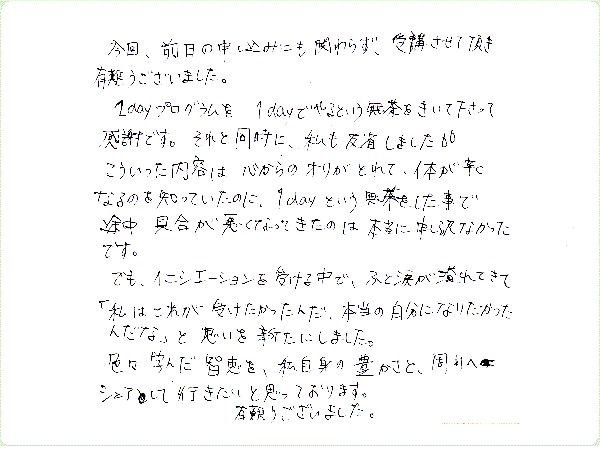 今回、前日の申し込みにも関わらず 受講させて頂き
有難うございました。
1dayプログラムを 1dayでやるという無茶をきいて下さって
感謝です。それと同時に、私も反省しました
こういった内容は 心からのオリがとれて、体が辛く
なるのを知っていたのに、1dayという無茶をした事で
途中 具合が悪くなってきたのは本当に申し訳なかった
です。
でも、イニシエーションを受ける中で、ふと涙が溢れてきて
「私はこれが受けたかったんだ、本当の自分になりたかった
んだな」と思いを新たにしました。
色々学んだ智恵を、私自身の豊かさと、周りへ
シェアして行きたいと思っております。
有難うございました。